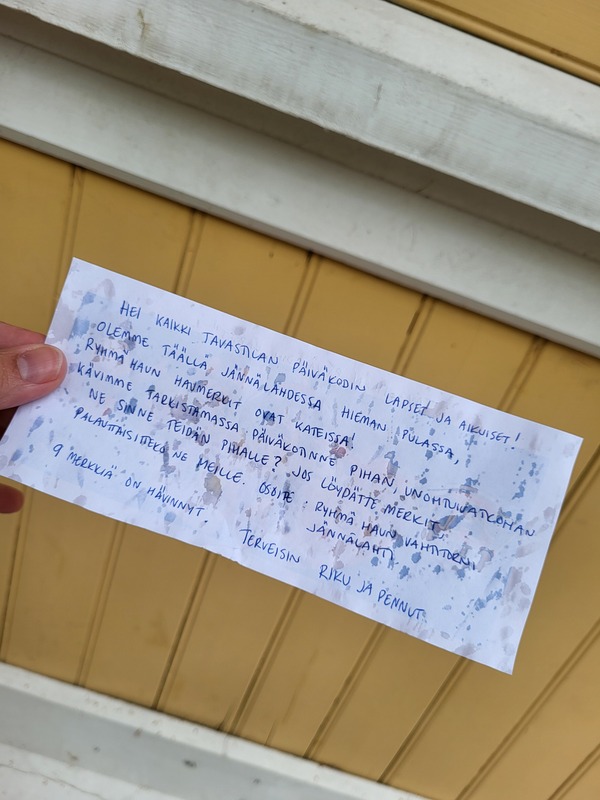 HEI KAIKKI TAVASTILAN PÄIVÄKODIN LAPSET JA AIKUISET!
OLEMME TÄÄLLÄ JÄNNÄLAHDESSA HIEMAN PULASSA,
RYHMÄ HAUN HAUMERKIT OVAT KATEISSA!
KÄVIMME TARKISTAMASSA PÄIVÄKOTINNE PIHAN, UNOHTUIVATKOHAN
NE SINNE TEIDÄN PIHALLE? JOS LÖYDÄTTE MERKIT,
PALAUTTAISITTEKO NE MEILLE. OSOITE: RYHMÄ HAUN VAHTITORNI,
JÄNNÄLAHTI.
9 "MERKKIÄ" ON HÄVINNYT.
TERVEISIN RIKU JA PENNUT.